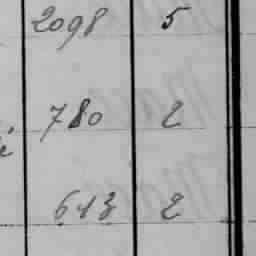 2098 5
780 2
613 2